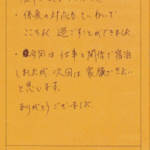 ・係員の対応も ていねいで
ここちよく 過ごすことができました
・今回は 仕事と関係で宿泊
しましたが、次回は 家族できたい
と思います。
ありがとうございました